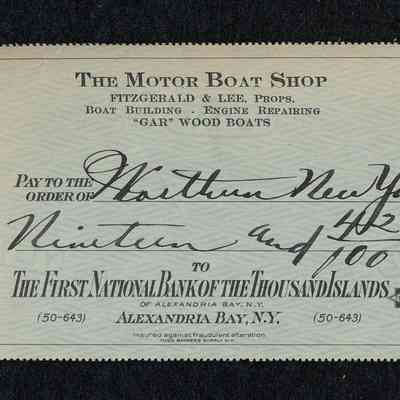 THE MOTOR BOAT SHOP
FITZGERALD & LEE, PROPS.
BOAT BUILDING - ENGINE REPAIRING
"GAR" WOOD BOATS
PAY TO THE
ORDER OF Northern New Yo
Nineteen and 42/100
TO
THE FIRST NATIONAL BANK OF THE THOUSAND ISLANDS
OF ALEXANDRIA BAY, N.Y.
(50-643) ALEXANDRIA BAY, N.Y. (50-643)
Insured against fraudulent alteration